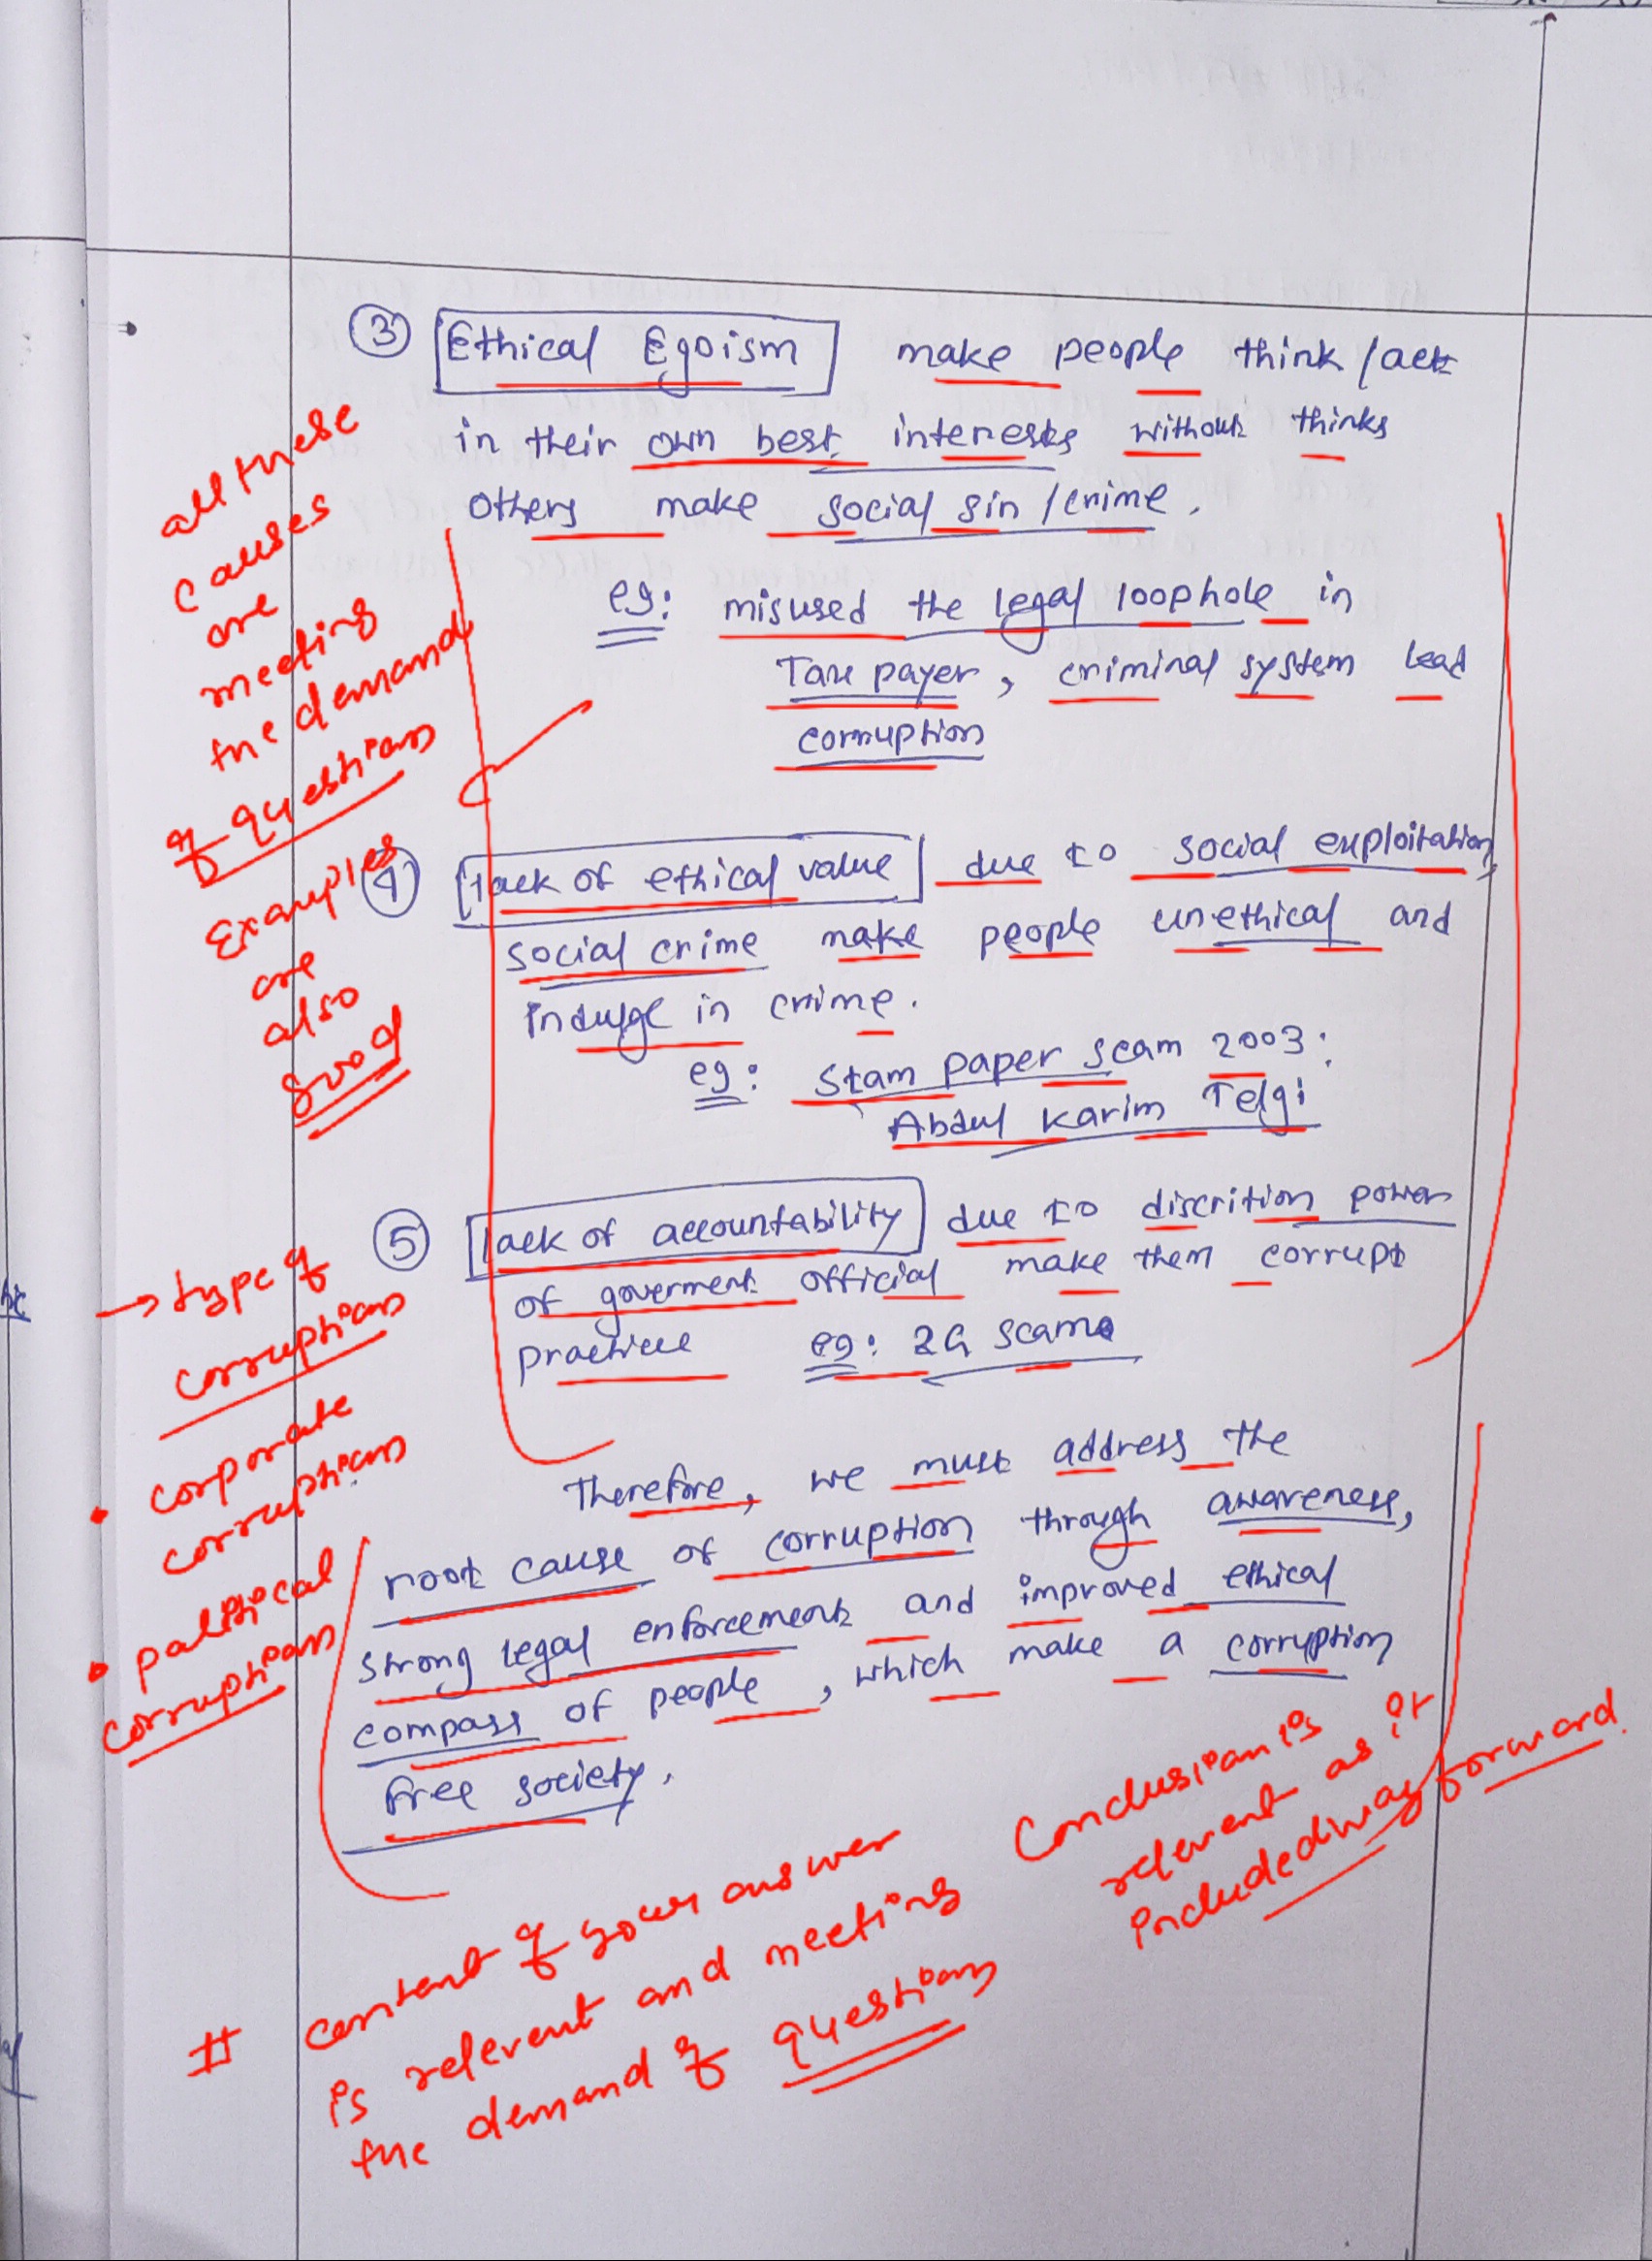 ③ Ethical Egoism make people think / act
in their own best interests without thinks
others make social sin / crime.
eg: misused the legal loophole in
Tax payer, criminal system lead
corruption
all these
causes
are
meeting
the demand
of question
Examples
are
also
good
④ lack of ethical value due to social exploitation,
social crime make people unethical and
indulge in crime.
eg: Stam paper scam 2003:
Abdul Karim Telgi
⑤ lack of accountability due to discrition power
of goverment official make them corrupt
practice eg: 2G scam
→ type of
corruption
• corporate
corruption
• political
corruption
Therefore, we must address the
root cause of corruption through awareness,
strong legal enforcement and improved ethical
compass of people, which make a corruption
free society.
Conclusion is
relevent as it
included way forward.
# content of your answer
is relevent and meeting
the demand of question